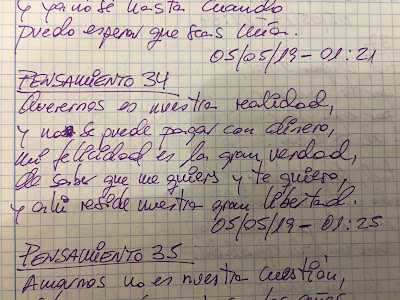 y ya no sé hasta cuando
puedo esperar que seas mía.
05/05/19-01:21
PENSAMIENTO 34
Querernos es nuestra realidad,
y no se puede pagar con dinero,
mi felicidad es la gran verdad,
de saber que me quieres y te quiero,
y allí reside nuestra gran libertad.
05/05/19-01:25
PENSAMIENTO 35
Amarnos no es nuestra cuestión,